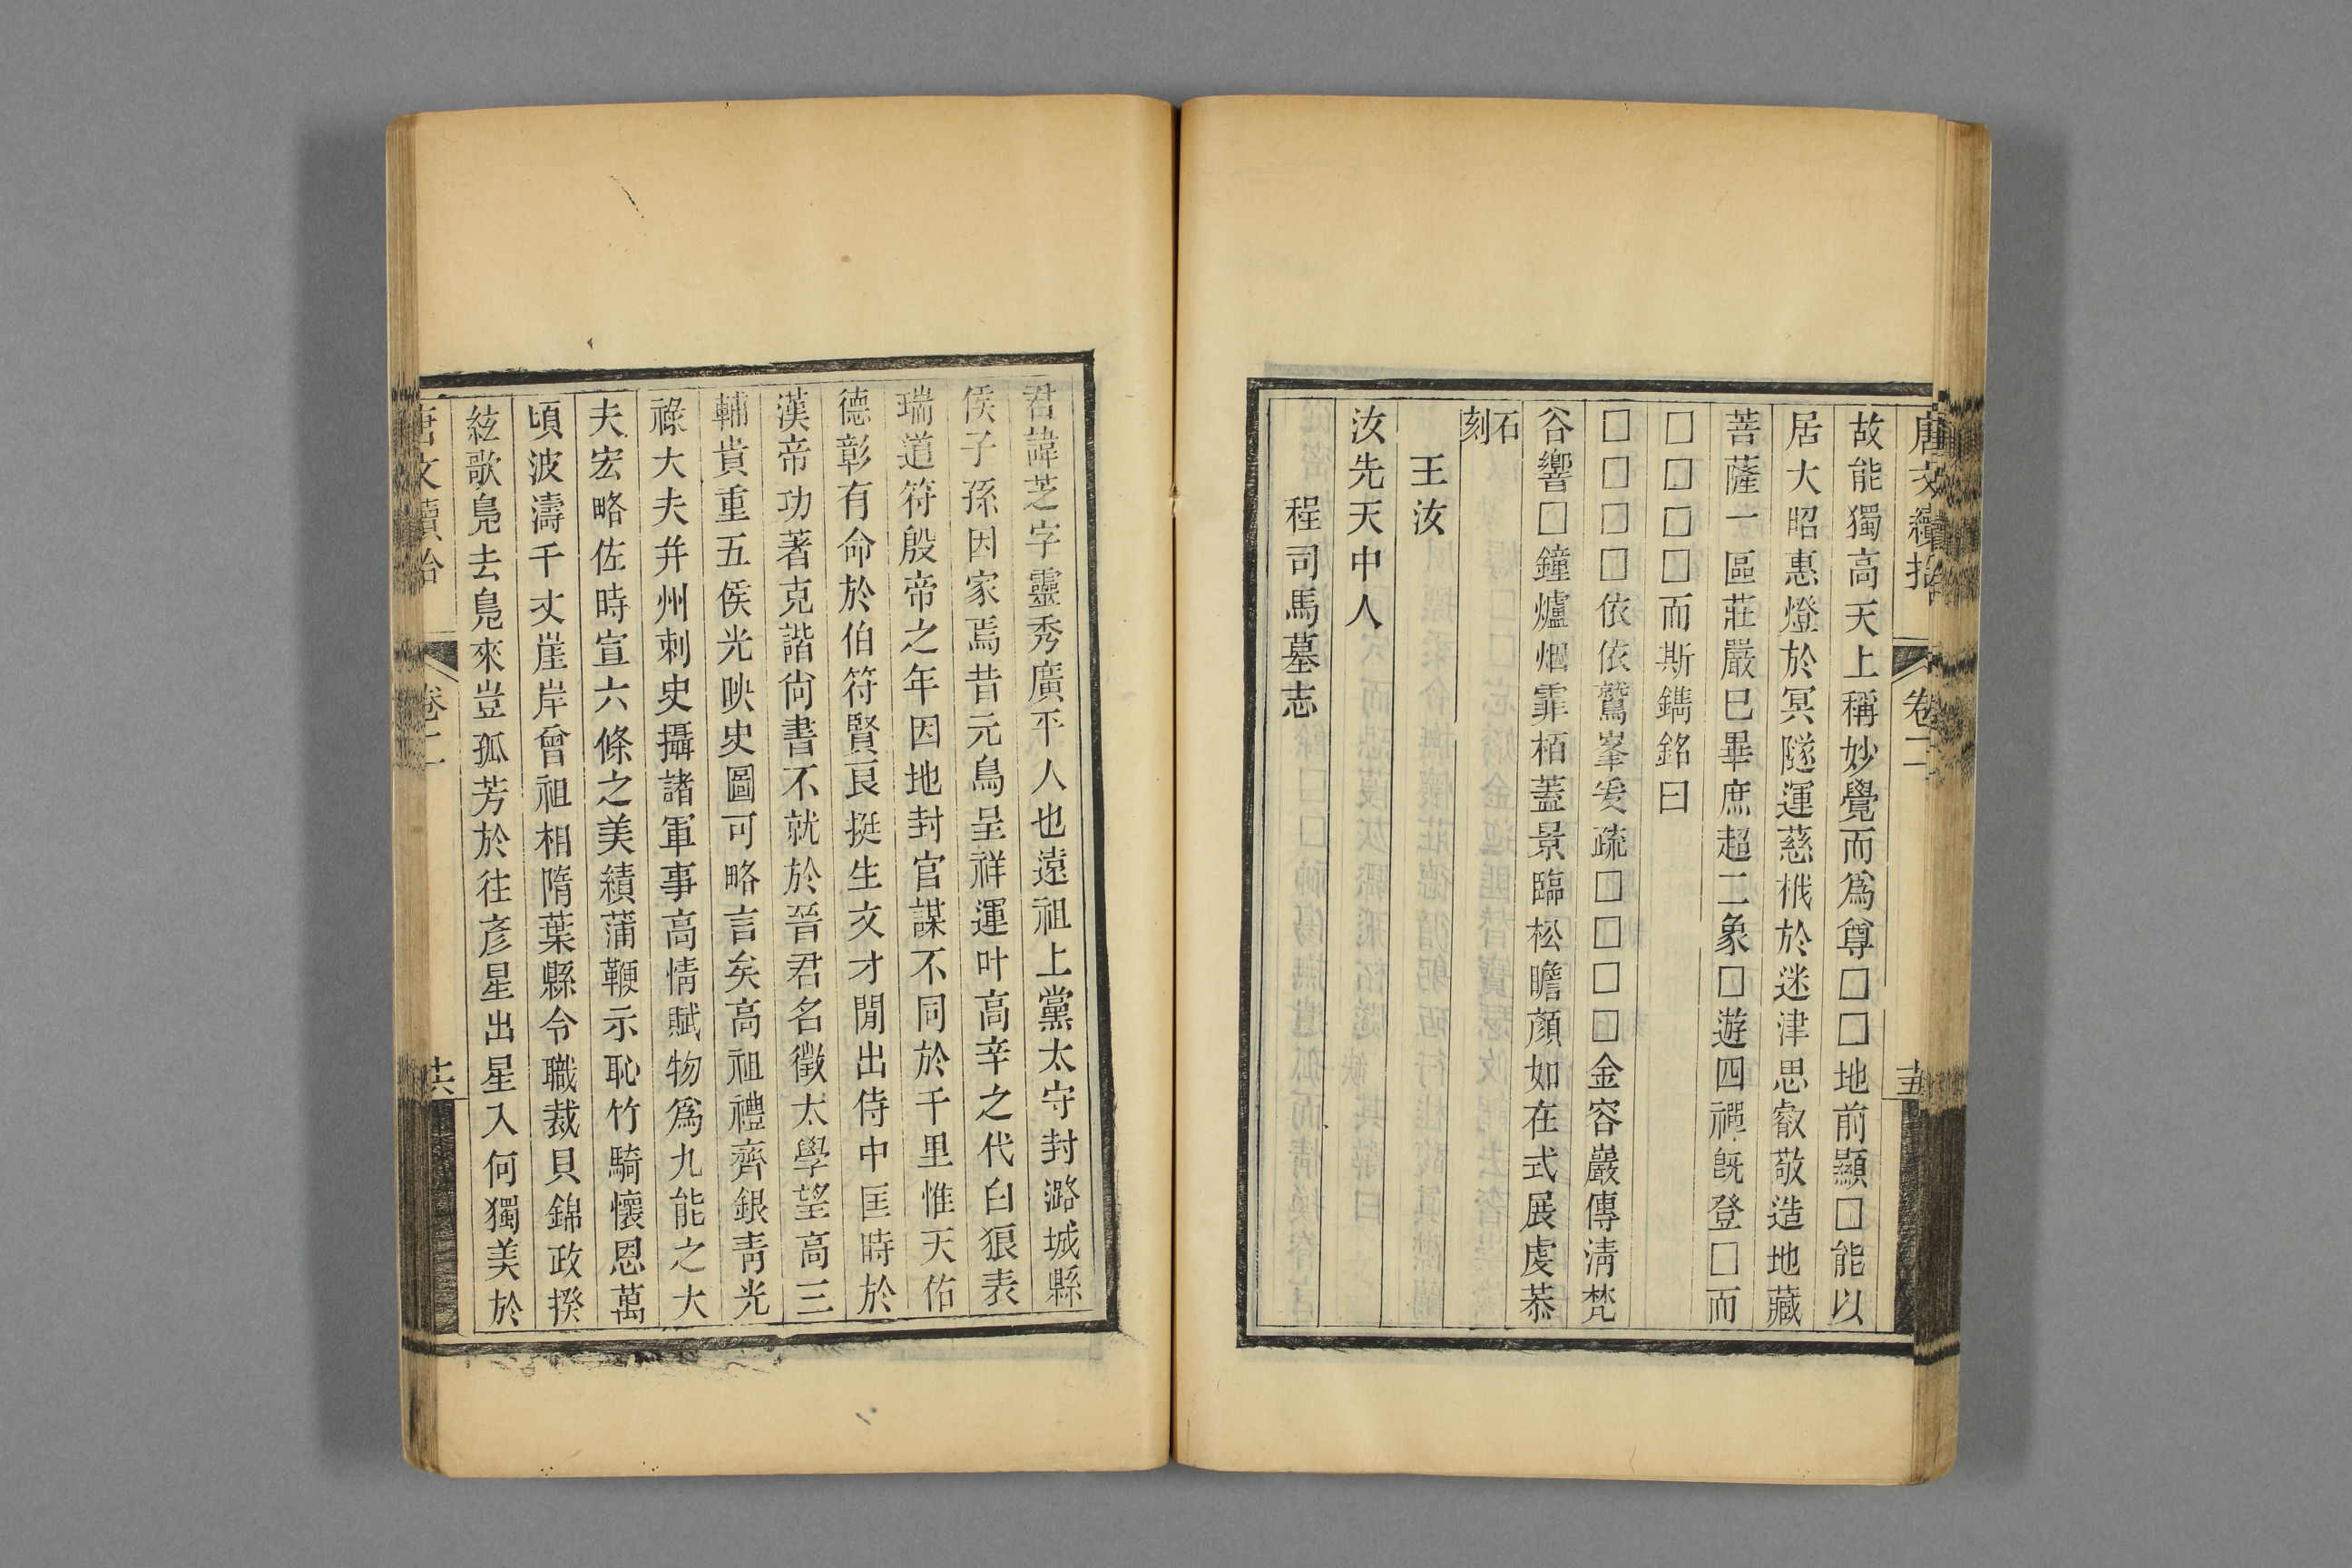 唐文續拾 卷二 十五
故能獨高天上稱妙覺而爲尊□□地前顯□能以
居大昭惠燈於冥隧運慈栰於迷津思叡敬造地藏
菩薩一區莊嚴巳畢庶超二象□遊四禪旣登□而
□□□□而斯鐫銘曰
□□□□依依鷲峯爰疏□□□□金容嚴傳淸梵
谷響□鐘爐烟霏栢蓋景臨松瞻顏如在式展虔恭
石刻
王汝
汝先天中人
程司馬墓志
君諱芝字靈秀廣平人也遠祖上黨太守封潞城縣
侯子孫因家焉昔元鳥呈祥運叶高辛之代白狼表
瑞道符殷帝之年因地封官謀不同於千里惟天佑
德彰有命於伯符賢良挺生文才閒出侍中匡時於
漢帝功著克諧尙書不就於晉君名徵太學望高三
輔貴重五侯光映史圖可略言矣高祖禮齊銀靑光
祿大夫幷州刺史攝諸軍事高情賦物爲九能之大
夫宏略佐時宣六條之美績蒲鞭示恥竹騎懷恩萬
頃波濤千丈崖岸曾祖相隋葉縣令職裁貝錦政揆
絃歌鳧去鳧來豈孤芳於往彥星出星入何獨美於
唐文續拾 卷二 十六